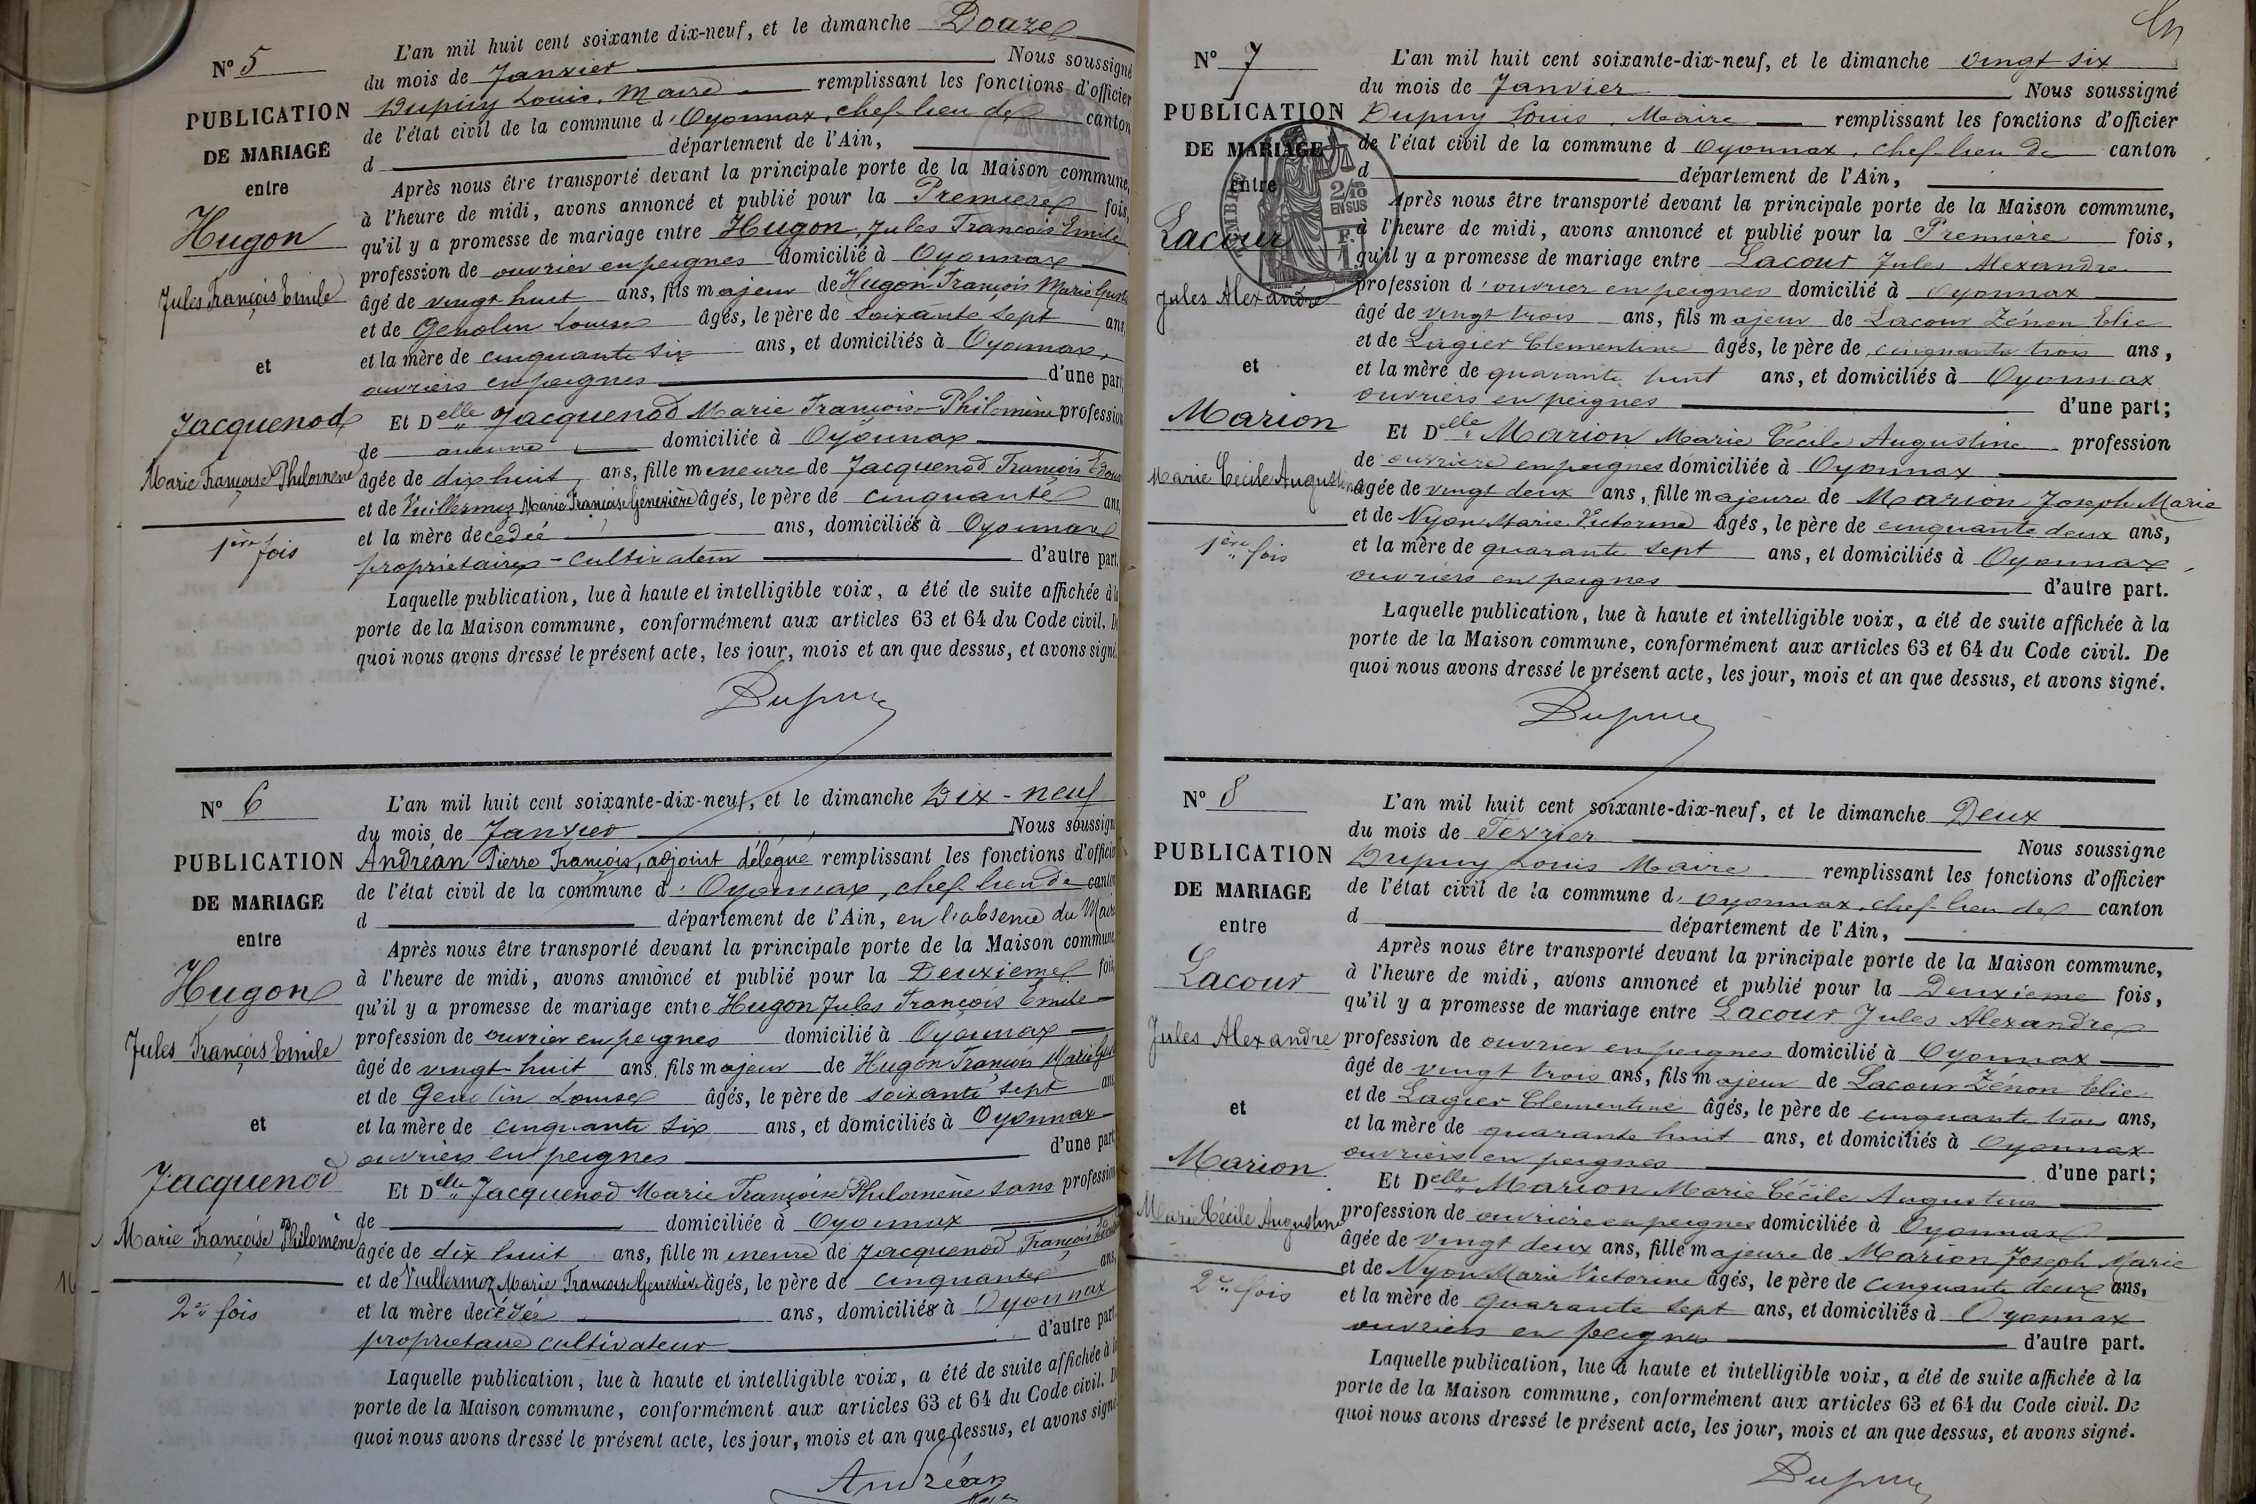 N° 5
PUBLICATION
DE MARIAGE
entre
Hugon
Jules François Emile
et
Jacquenod
Marie Françoise Philomène
1ère fois
L'an mil huit cent soixante dix-neuf, et le dimanche Douze
du mois de Janvier Nous soussigné
Dupuy Louis, Maire remplissant les fonctions d'officier
de l'état civil de la commune d'Oyonnax, chef-lieu de canton
d département de l'Ain,
Après nous être transporté devant la principale porte de la Maison commune,
à l'heure de midi, avons annoncé et publié pour la Première fois,
qu'il y a promesse de mariage entre Hugon, Jules François Emile
profession de ouvrier en peignes domicilié à Oyonnax
âgé de vingt huit ans, fils majeur de Hugon François Marie
et de Genolin Louise âgés, le père de soixante sept ans,
et la mère de cinquante six ans, et domiciliés à Oyonnax,
ouvriers en peignes d'une part,
Et Delle Jacquenod Marie Françoise Philomène profession
de aucune domiciliée à Oyonnax
âgée de dix huit ans, fille mineure de Jacquenod François
et de Vuillermoz Marie Françoise Geneviève âgés, le père de cinquante ans,
et la mère décédée ans, domiciliés à Oyonnax
propriétaires-cultivateur d'autre part.
Laquelle publication, lue à haute et intelligible voix, a été de suite affichée à la
porte de la Maison commune, conformément aux articles 63 et 64 du Code civil. De
quoi nous avons dressé le présent acte, les jour, mois et an que dessus, et avons signé.
Dupuy
N° 6
PUBLICATION
DE MARIAGE
entre
Hugon
Jules François Emile
et
Jacquenod
Marie Françoise Philomène
2e fois
L'an mil huit cent soixante-dix-neuf, et le dimanche Dix-neuf
du mois de Janvier Nous soussigné
Andréan Pierre François, adjoint délégué remplissant les fonctions d'officier
de l'état civil de la commune d'Oyonnax, chef-lieu de canton
d département de l'Ain, en l'absence du Maire
Après nous être transporté devant la principale porte de la Maison commune
à l'heure de midi, avons annoncé et publié pour la Deuxième fois,
qu'il y a promesse de mariage entre Hugon Jules François Emile
profession de ouvrier en peignes domicilié à Oyonnax
âgé de vingt-huit ans, fils majeur de Hugon François Marie
et de Genolin Louise âgés, le père de soixante sept ans
et la mère de cinquante six ans, et domiciliés à Oyonnax
ouvriers en peignes d'une part
Et Delle Jacquenod Marie Françoise Philomène sans profession
de domiciliée à Oyonnax
âgée de dix huit ans, fille mineure de Jacquenod François
et de Vuillermoz Marie Françoise Geneviève âgés, le père de cinquante ans,
et la mère décédée ans, domiciliés à Oyonnax
propriétaire cultivateur d'autre part
Laquelle publication, lue à haute et intelligible voix, a été de suite affichée à la
porte de la Maison commune, conformément aux articles 63 et 64 du Code civil. De
quoi nous avons dressé le présent acte, les jour, mois et an que dessus, et avons signé
Andréan
N° 7
PUBLICATION
DE MARIAGE
entre
TIMBRE
2/10
EN SUS
Lacour
Jules Alexandre
et
Marion
Marie Cécile Augustine
1ère fois
L'an mil huit cent soixante-dix-neuf, et le dimanche vingt six
du mois de Janvier Nous soussigné
Dupuy Louis, Maire remplissant les fonctions d'officier
de l'état civil de la commune d Oyonnax, chef-lieu de canton
d département de l'Ain,
Après nous être transporté devant la principale porte de la Maison commune,
à l'heure de midi, avons annoncé et publié pour la Première fois,
qu'il y a promesse de mariage entre Lacour Jules Alexandre
profession d'ouvrier en peignes domicilié à Oyonnax
âgé de vingt trois ans, fils majeur de Lacour Zénon Elie
et de Lagier Clementine âgés, le père de cinquante trois ans,
et la mère de quarante huit ans, et domiciliés à Oyonnax
ouvriers en peignes d'une part;
Et Delle Marion Marie Cécile Augustine profession
de ouvrière en peignes domiciliée à Oyonnax
âgée de vingt deux ans, fille majeure de Marion Joseph Marie
et de Nyon Marie Victorine âgés, le père de cinquante deux ans,
et la mère de quarante sept ans, et domiciliés à Oyonnax,
ouvriers en peignes d'autre part.
Laquelle publication, lue à haute et intelligible voix, a été de suite affichée à la
porte de la Maison commune, conformément aux articles 63 et 64 du Code civil. De
quoi nous avons dressé le présent acte, les jour, mois et an que dessus, et avons signé.
Dupuy
N° 8
PUBLICATION
DE MARIAGE
entre
Lacour
Jules Alexandre
et
Marion
Marie Cécile Augustine
2e fois
L'an mil huit cent soixante-dix-neuf, et le dimanche Deux
du mois de Février Nous soussigne
Dupuy Louis Maire remplissant les fonctions d'officier
de l'état civil de la commune d'Oyonnax, chef-lieu de canton
d département de l'Ain,
Après nous être transporté devant la principale porte de la Maison commune,
à l'heure de midi, avons annoncé et publié pour la Deuxième fois,
qu'il y a promesse de mariage entre Lacour Jules Alexandre
profession de ouvrier en peignes domicilié à Oyonnax
âgé de vingt trois ans, fils majeur de Lacour Zénon Elie
et de Lagier Clementine âgés, le père de cinquante trois ans,
et la mère de quarante huit ans, et domiciliés à Oyonnax
ouvriers en peignes d'une part;
Et Delle Marion Marie Cécile Augustine
profession de ouvrière en peignes domiciliée à Oyonnax
âgée de vingt deux ans, fille majeure de Marion Joseph Marie
et de Nyon Marie Victorine âgés, le père de cinquante deux ans,
et la mère de quarante sept ans, et domiciliés à Oyonnax
ouvriers en peignes d'autre part.
Laquelle publication, lue à haute et intelligible voix, a été de suite affichée à la
porte de la Maison commune, conformément aux articles 63 et 64 du Code civil. De
quoi nous avons dressé le présent acte, les jour, mois et an que dessus, et avons signé.
Dupuy